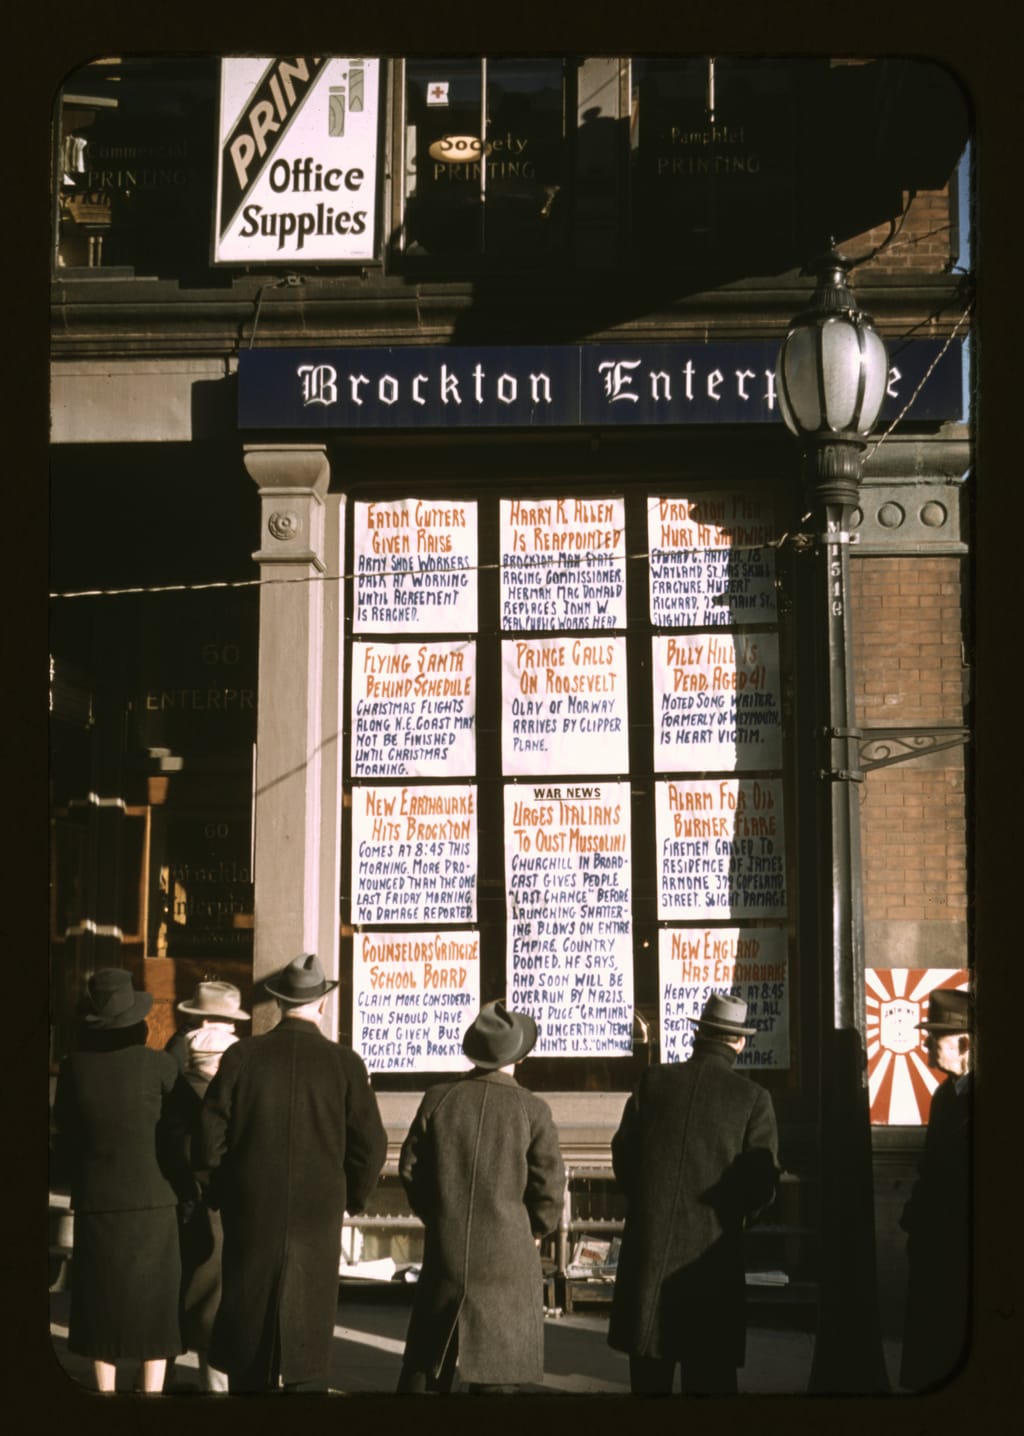 PRIN
Office
Supplies
Commercial
PRINTING
Society
PRINTING
Pamphlet
PRINTING
Brockton Enterp e
EATON CUTTERS
GIVEN RAISE
ARMY SHOE WORKERS
BALK AT WORKING
UNTIL AGREEMENT
IS REACHED.
HARRY R. ALLEN
IS REAPPOINTED
BROCKTON MAN STATE
RACING COMMISSIONER.
HERMAN MACDONALD
REPLACES JOHN W.
BEAL PUBLIC WORKS HEAD
BROCKTON MEN
HURT AT SANDWICH
EDWARD C. HAYDEN, 18
WAYLAND ST. HAS SKULL
FRACTURE. HUBERT
RICHARD, MAIN ST.,
SLIGHTLY HURT.
FLYING SANTA
BEHIND SCHEDULE
CHRISTMAS FLIGHTS
ALONG N.E. COAST MAY
NOT BE FINISHED
UNTIL CHRISTMAS
MORNING.
PRINCE CALLS
ON ROOSEVELT
OLAV OF NORWAY
ARRIVES BY CLIPPER
PLANE.
BILLY HILL IS
DEAD, AGED 41
NOTED SONG WRITER,
FORMERLY OF WEYMOUTH,
IS HEART VICTIM.
NEW EARTHQUAKE
HITS BROCKTON
COMES AT 8:45 THIS
MORNING. MORE PRO-
NOUNCED THAN THE ONE
LAST FRIDAY MORNING.
NO DAMAGE REPORTED.
WAR NEWS
URGES ITALIANS
TO OUST MUSSOLINI
CHURCHILL IN BROAD-
CAST GIVES PEOPLE
"LAST CHANCE" BEFORE
LAUNCHING SHATTER-
ING BLOWS ON ENTIRE
EMPIRE. COUNTRY
DOOMED. HE SAYS,
AND SOON WILL BE
OVERRUN BY NAZIS.
CALLS DUCE "CRIMINAL"
UNCERTAIN TERMS
HINTS U.S. "ON MARCH
ALARM FOR OIL
BURNER FLARE
FIREMEN CALLED TO
RESIDENCE OF JAMES
ARNONE 379 COPELAND
STREET. SLIGHT DAMAGE.
COUNSELORS CRITICIZE
SCHOOL BOARD
CLAIM MORE CONSIDERA-
TION SHOULD HAVE
BEEN GIVEN BUS
TICKETS FOR BROCKTON
CHILDREN.
NEW ENGLAND
HAS EARTHQUAKE
HEAVY SHOCKS AT 8:45
A.M. IN ALL
SECTION
IN
NO DAMAGE.
50
ENTERPR
60
Brockto
Enterpri
M 1518